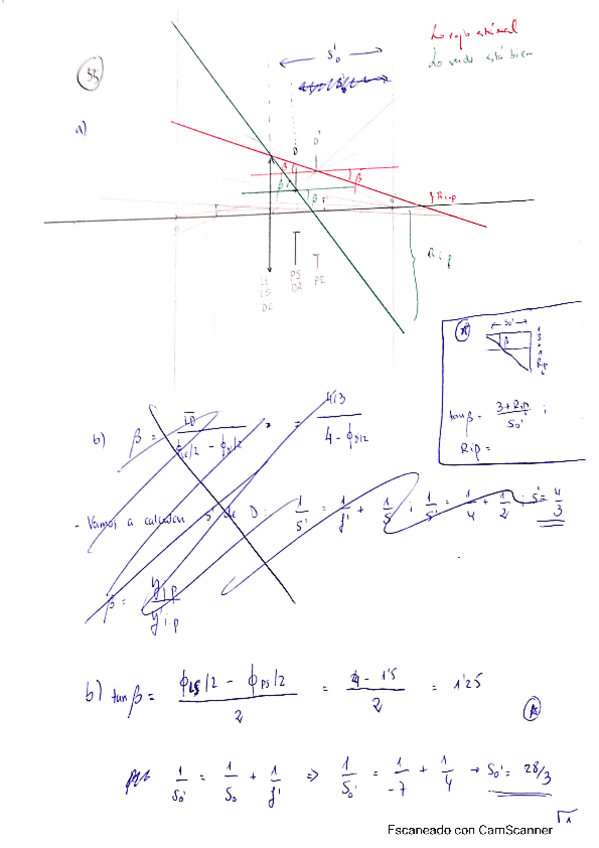 Lo rojo está mal
Lo verde está bien
55
a)
S₀'
D
D'
β
β
β
β
F'
y R i.p
R i.p
LE
LS
DC
PS
DA
PE
(*)
S₀'
β
3
R i.p
tan β = (3 + R i.p) / S₀' ;
R i.p =
b) β = / (ϕLS/2 - ϕ /2) = 4/3 / (4 - ϕ /2)
- Vamos a calcular s' de D: 1/s' = 1/f' + 1/s ; 1/s' = 1/4 + 1/2 ; s' = 4/3
β = y i.p / y' i.p
b) tan β = (ϕLS/2 - ϕPS/2) / 2 = (4 - 1'5) / 2 = 1'25
(*)
1/S₀' = 1/S₀ + 1/f' ⇒ 1/S₀' = 1/-7 + 1/4 → S₀' = 28/3
Γ1
Escaneado con CamScanner